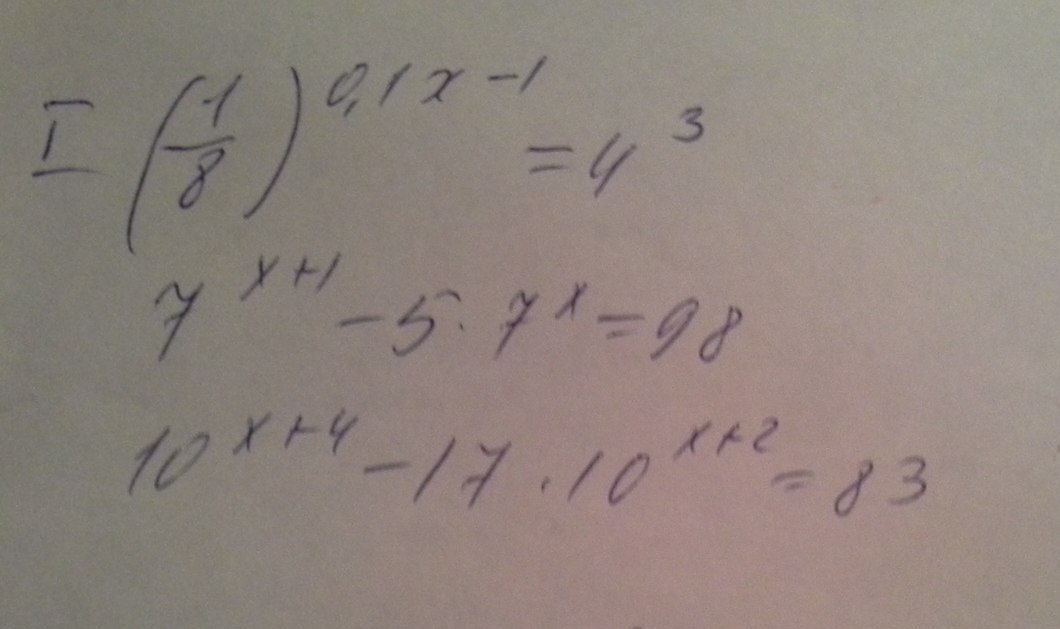 I (1/8)^{0,1x-1} = 4^3
7^{x+1} - 5 · 7^x = 98
10^{x+4} - 17 · 10^{x+2} = 83